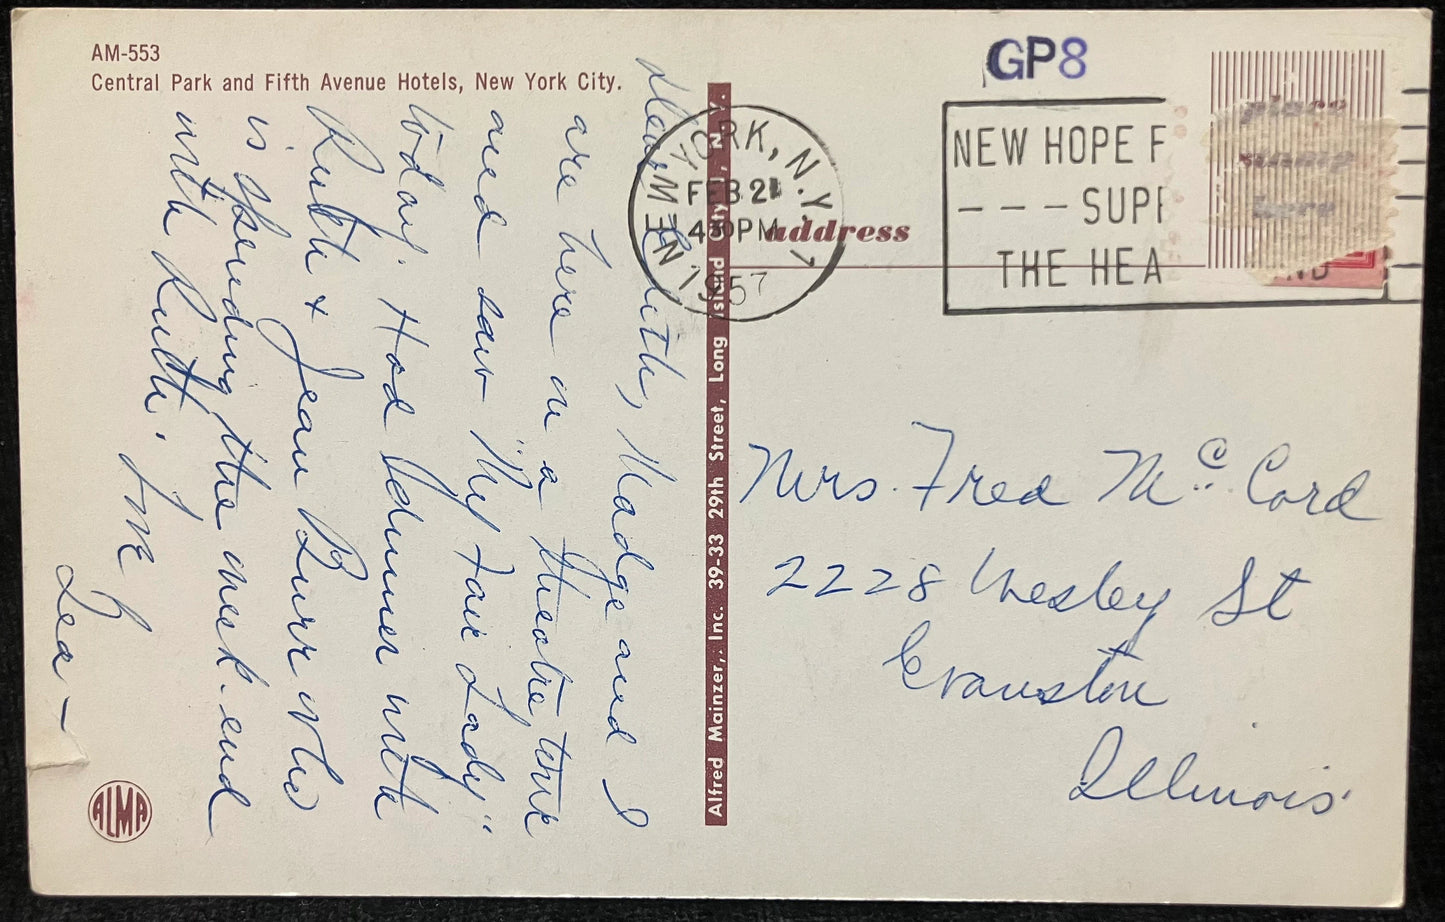 AM-553
Central Park and Fifth Avenue Hotels, New York City.
Dear Ruth, Madge and I
are here on a theatre tour
and saw "My Fair Lady"
today. Had dinner with
Ruth & Jean Burr who
is spending the week-end
with Ruth.
Lea –
ALMA
Alfred Mainzer, Inc. 39-33 29th Street, Long Island City 1, N. Y.
NEW YORK, N.Y. 1
FEB 21
430PM
1957
GP8
NEW HOPE F
– – – SUPP
THE HEA
ND
place
stamp
here
address
Mrs. Fred Mc. Cord
2228 Wesley St
Evanston
Illinois.